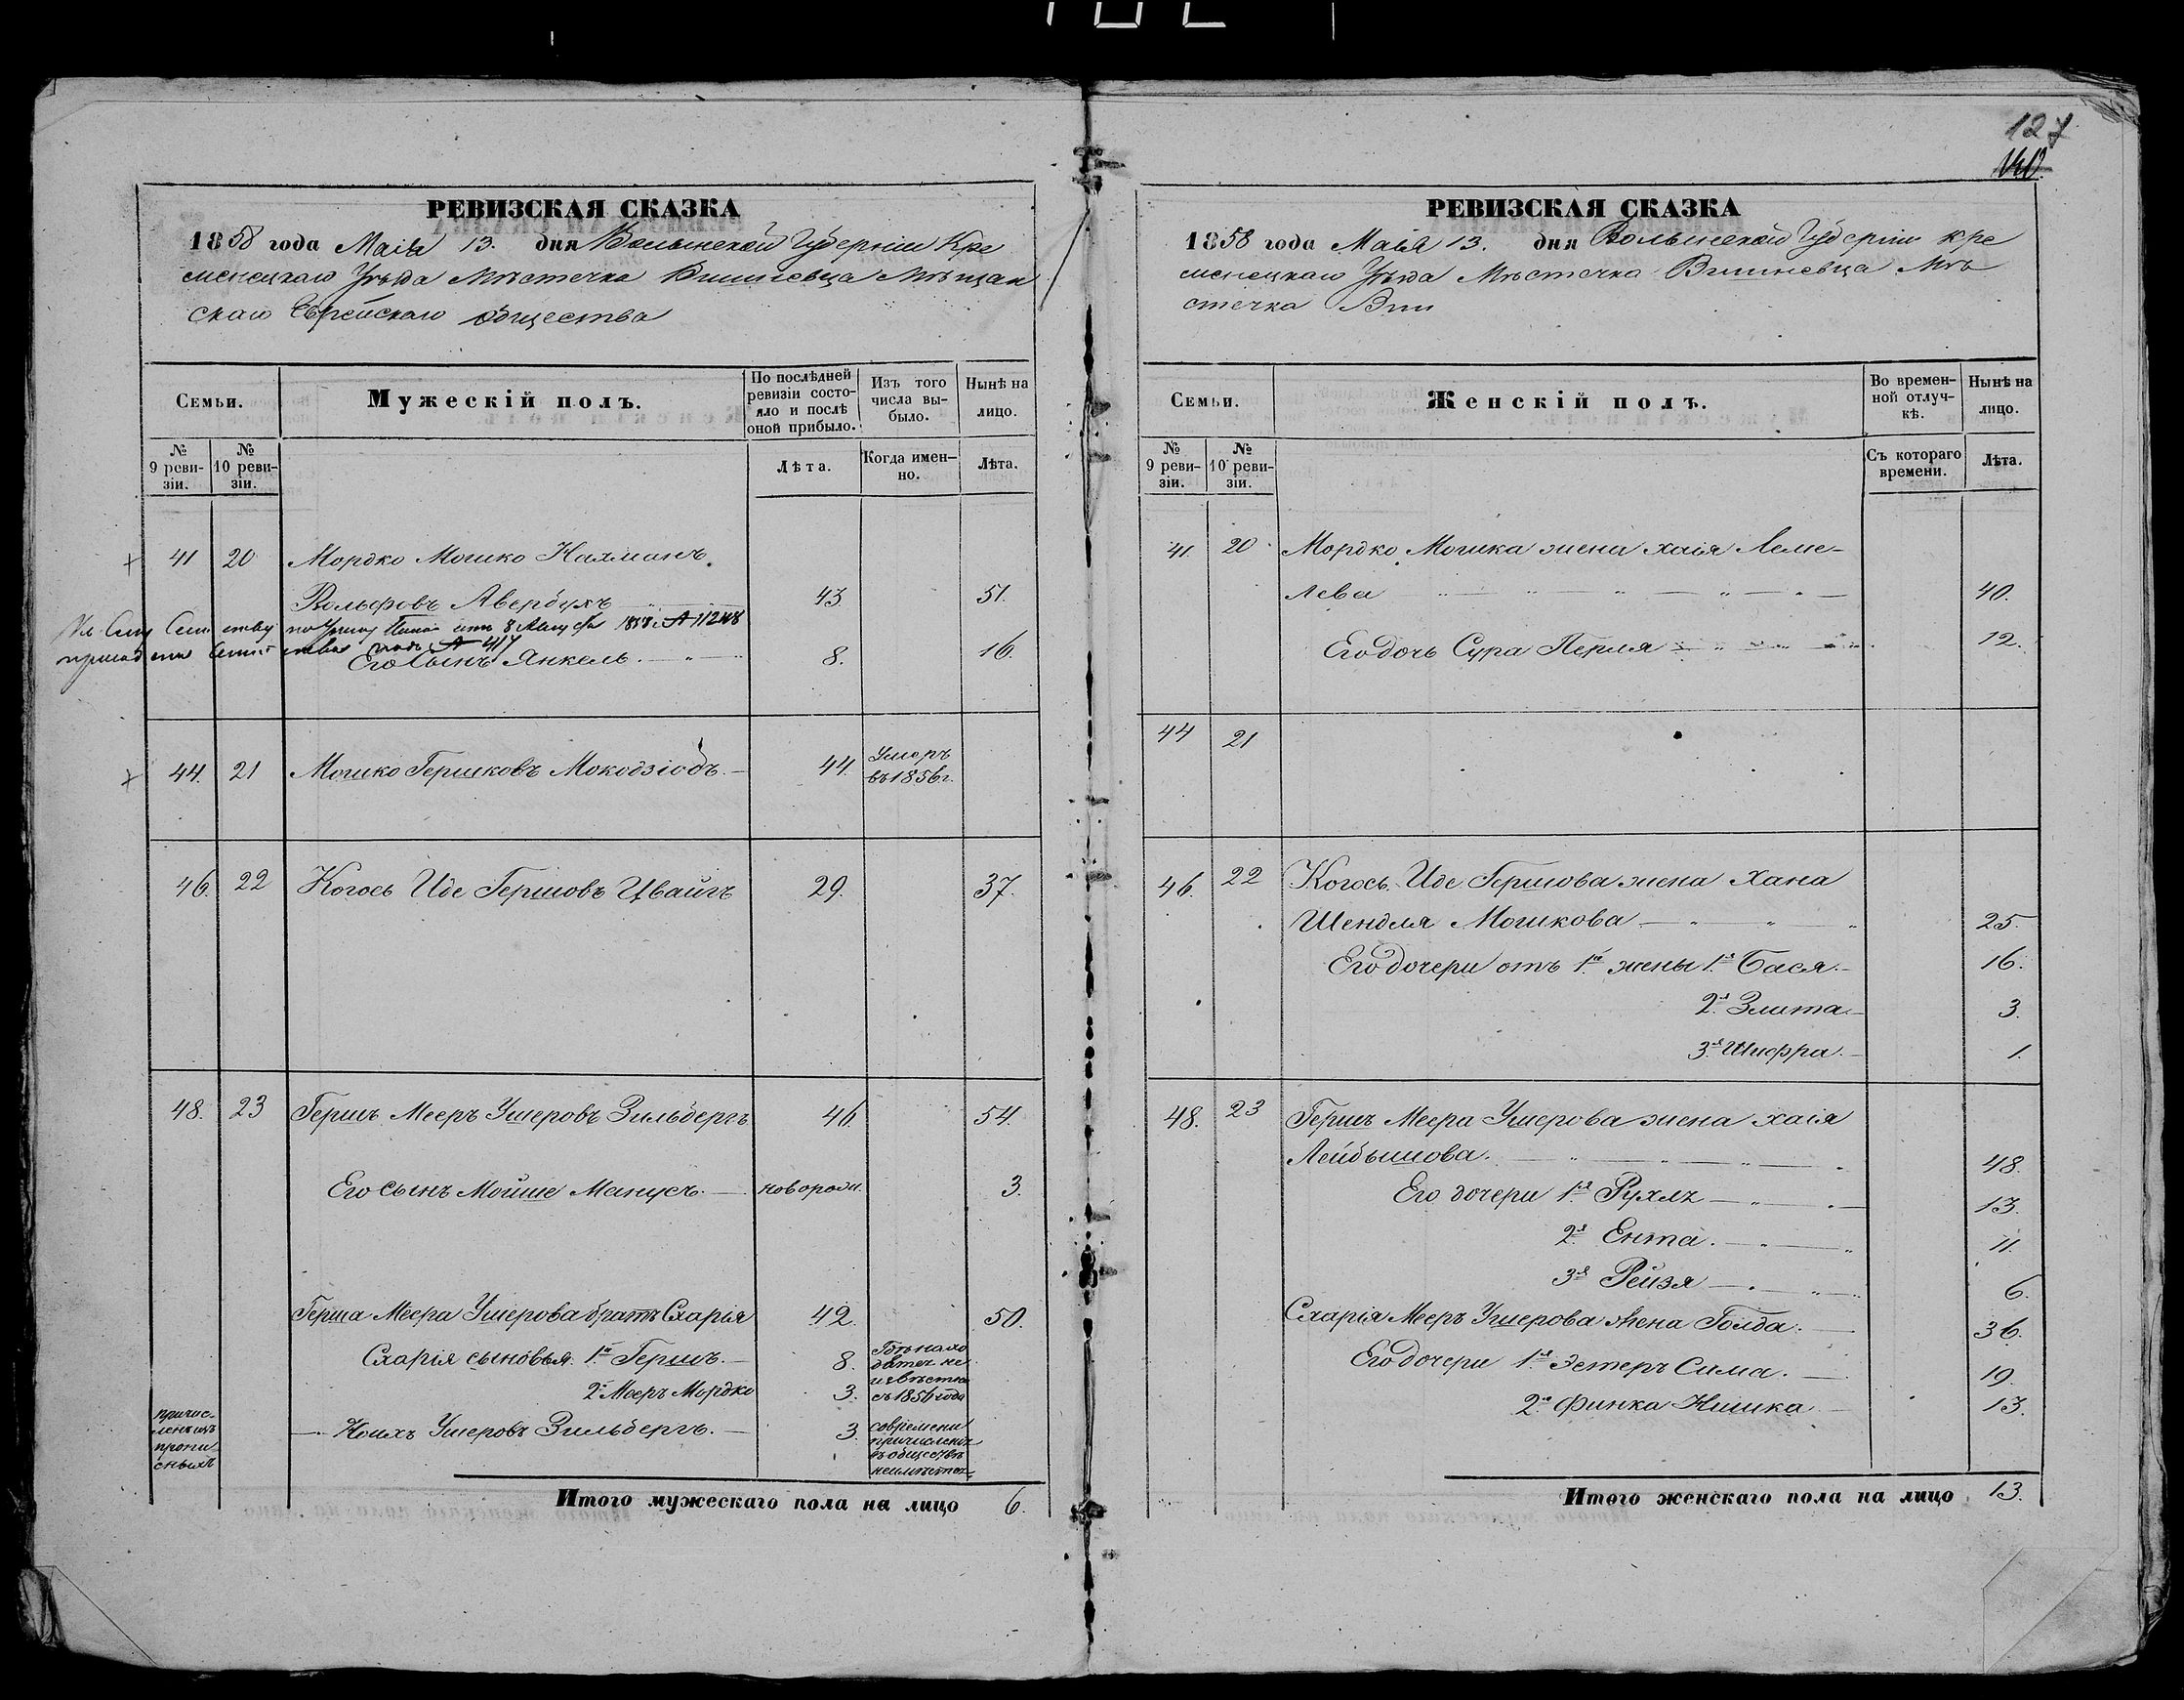 127
140
РЕВИЗСКАЯ СКАЗКА
1858 года Маія 13. дня Волынской Губерніи Кре
менецкаго Уѣзда Мѣстечка Вишневца Мѣщан
скаго Еврейскаго Общества
Семьи.
Мужескій полъ.
По послѣдней ревизіи состояло и послѣ оной прибыло.
Изъ того числа выбыло.
Нынѣ на лицо.
№ 9 ревизіи.
№ 10 ревизіи.
Лѣта.
Когда именно.
Лѣта.
41 20 Мордко Мошко Нахманъ
Вольфовъ Авербухъ 43 51.
Къ Сему Семейству по Указу Палаты отъ 8 Августа 1858 № 11248
подъ № 417
Его Сынъ Янкель. 8. 16.
44. 21 Мошко Гершковъ Мокодзіобъ. 44. Умеръ
въ 1856 г.
46. 22 Когосъ Иде Гершовъ Цвайгъ 29. 37.
48. 23 Гершъ Мееръ Ушеровъ Зильбергъ 46. 54.
Его сынъ Мойше Манусъ. новорожд. 3.
Герша Меера Ушерова братъ Схарія 42. 50.
Схарія сыновья: 1й Гершъ. 8. Гдѣ нахо
дятся не
2й Мееръ Мордко 3. извѣстно
съ 1856 года
причис
ленный
пропи
сныхъ
Ушеровъ Зильбергъ. 3. современи
причисленія
въ обществѣ
неимѣется
Итого мужескаго пола на лицо 6.
РЕВИЗСКАЯ СКАЗКА
1858 года Маія 13. дня Волынской Губерніи Кре
менецкаго Уѣзда Мѣстечка Вишневца Мѣ
стечка Виш
Семьи.
Женскій полъ.
Во временной отлучкѣ.
Нынѣ на лицо.
№ 9 ревизіи.
№ 10 ревизіи.
Съ котораго времени.
Лѣта.
41. 20 Мордко Мошка жена Хаія Леме-
лева 40.
Его дочь Сура Перля 12.
44 21
46. 22 Когосъ Иде Гершова жена Хана
Шендля Мошкова 25.
Его дочери отъ 1й жены 1я Бася. 16.
2я Злата 3.
3я Шифра. 1.
48. 23 Гершъ Меера Ушерова жена Хаія
Лейбышова. 48.
Его дочери 1я Рухля 13.
2я Ента. 11.
3я Рейзя 6.
Схарія Мееръ Ушерова жена Голда. 36.
Его дочери 1я Эстеръ Сима. 19.
2я Финка Нишка 13.
Итого женскаго пола на лицо 13.